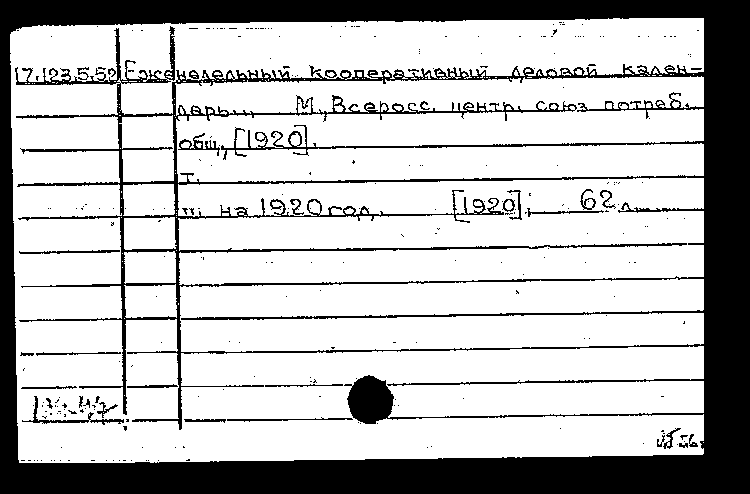 17.123.5.52 Еженедельный кооперативный деловой кален-
дарь... М., Всеросс. центр. союз потреб.
общ., [1920].
т.
на 1920 год. [1920]. 62 л.